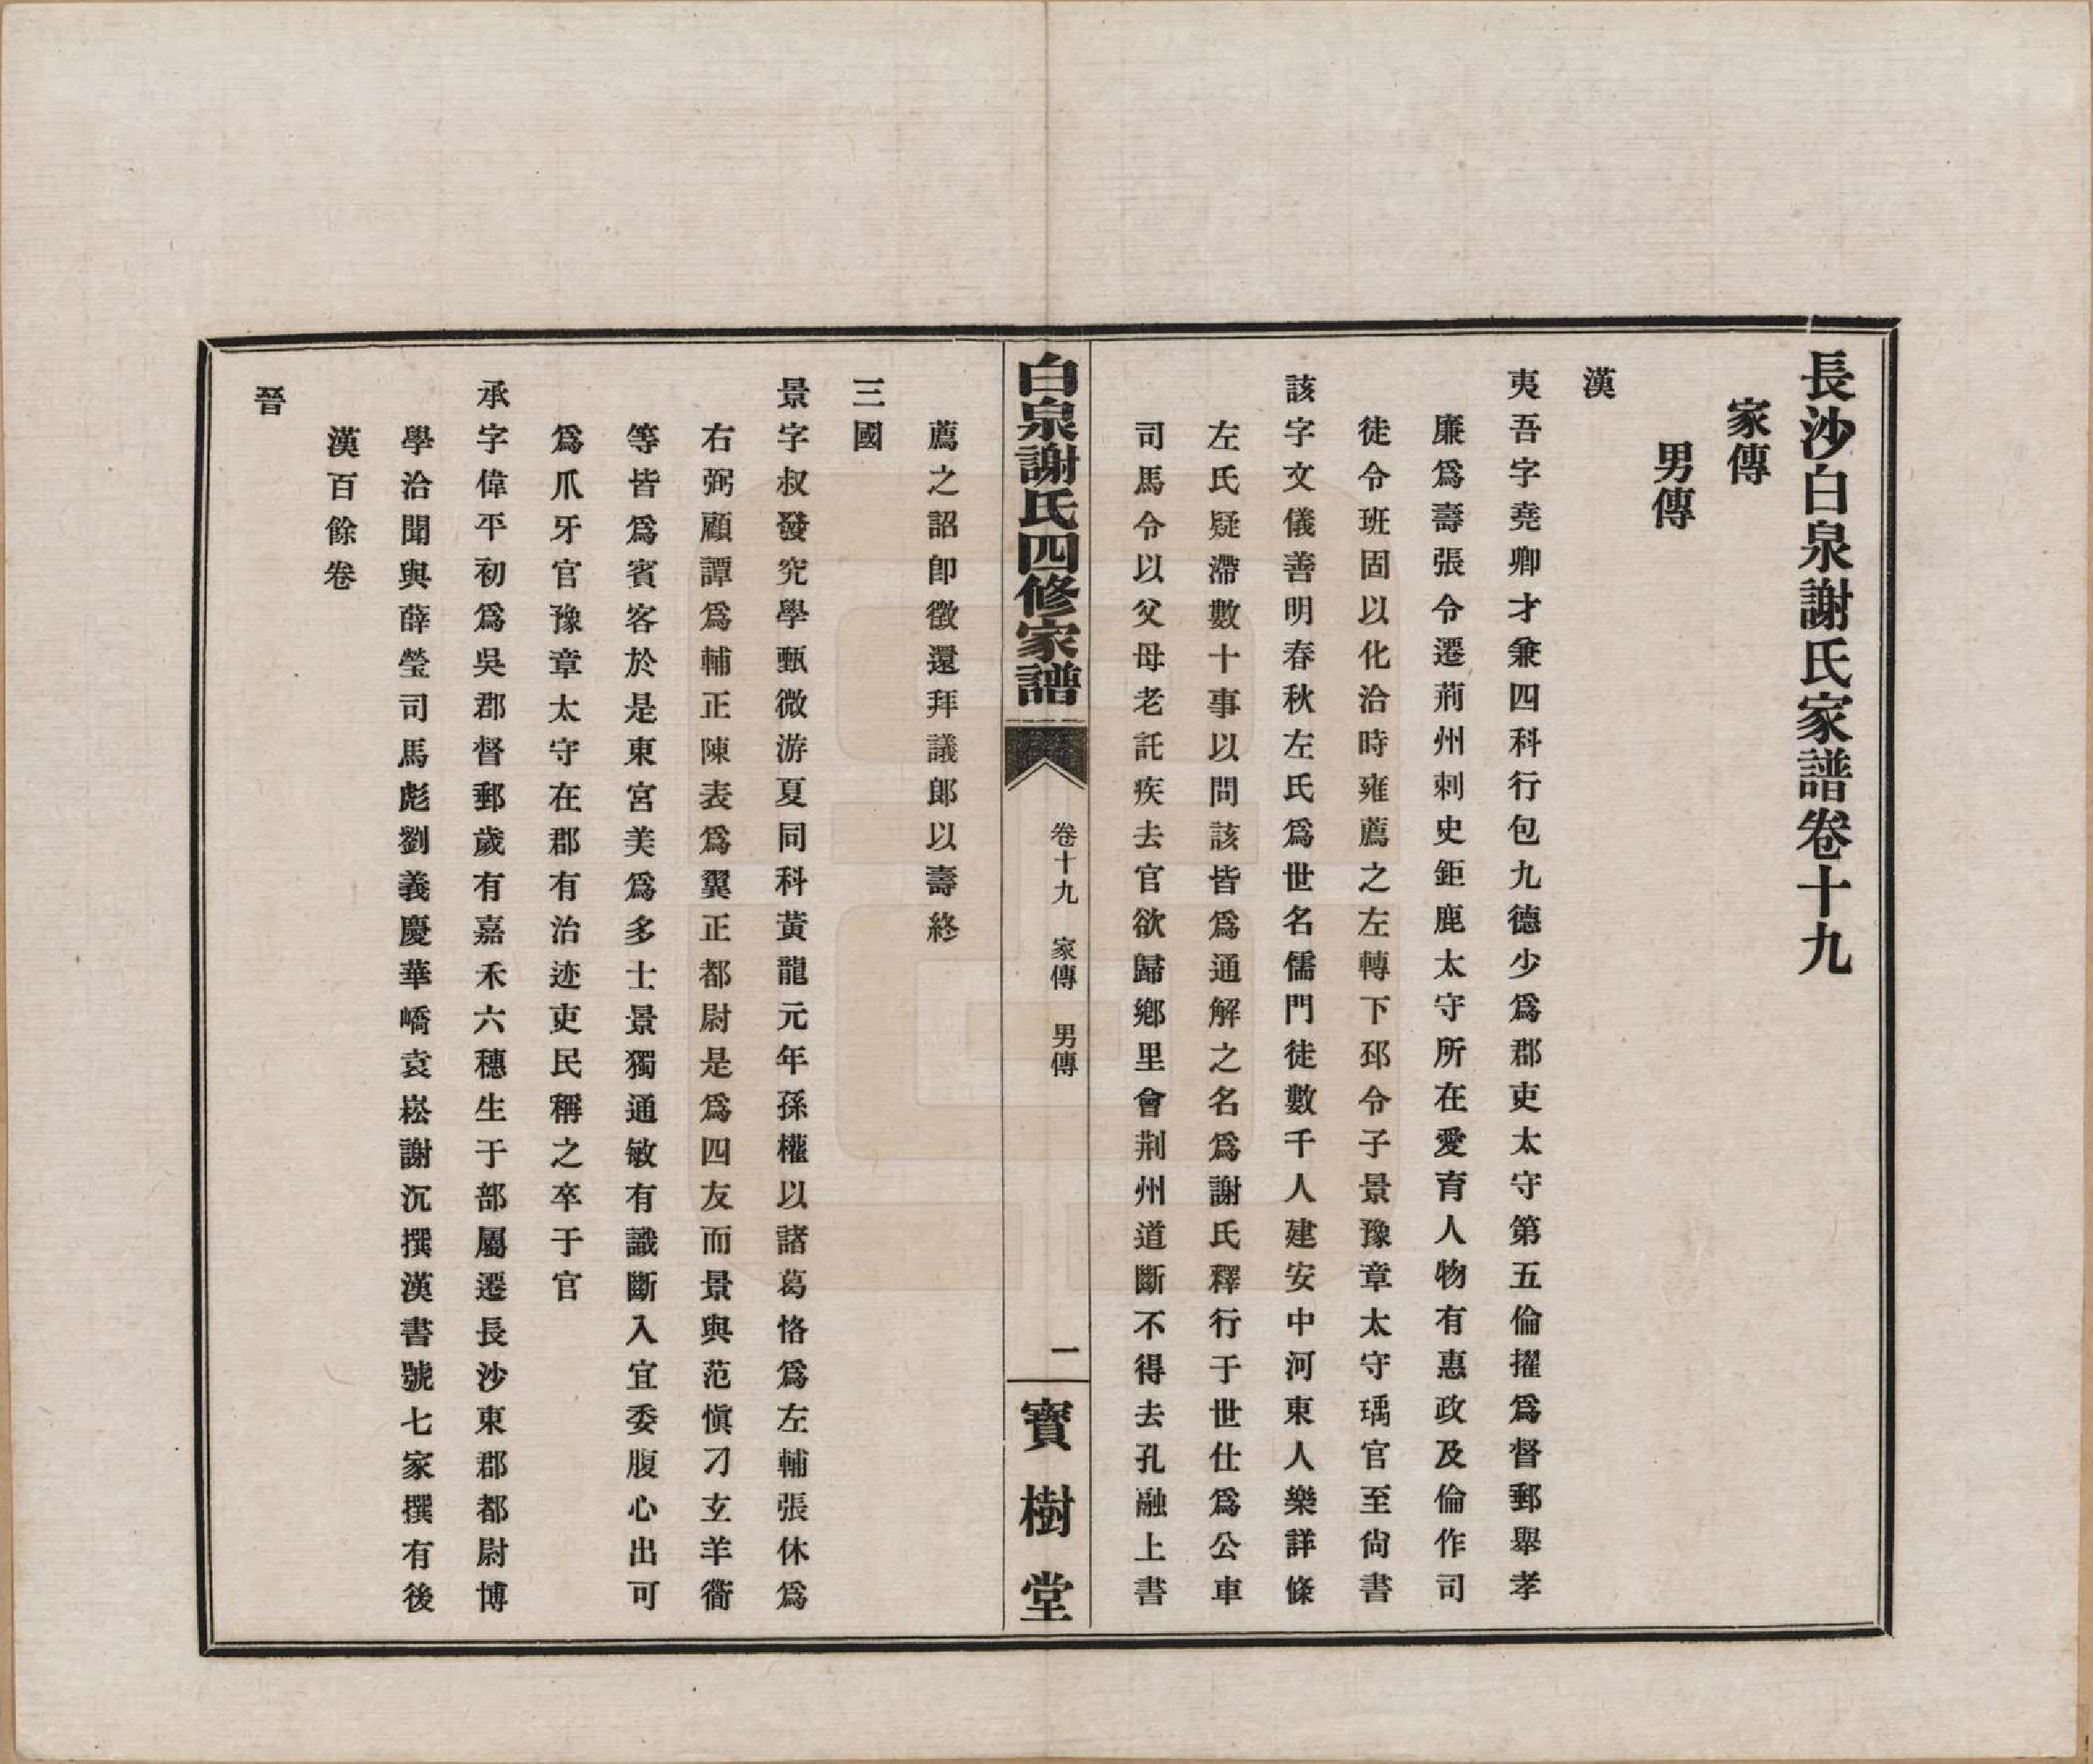 長沙白泉謝氏家譜卷十九
家傳
男傳
漢
夷吾字堯卿才兼四科行包九德少爲郡吏太守第五倫擢爲督郵舉孝
廉爲壽張令遷荊州刺史鉅鹿太守所在愛育人物有惠政及倫作司
徒令班固以化洽時雍薦之左轉下邳令子景豫章太守瑀官至尙書
該字文儀善明春秋左氏爲世名儒門徒數千人建安中河東人樂詳條
左氏疑滯數十事以問該皆爲通解之名爲謝氏釋行于世仕爲公車
司馬令以父母老託疾去官欲歸鄕里會荆州道斷不得去孔融上書
白泉謝氏四修家譜
卷十九 家傳 男傳
一
寶樹堂
薦之詔卽徵還拜議郎以壽終
三國
景字叔發究學甄微游夏同科黃龍元年孫權以諸葛恪爲左輔張休爲
右弼顧譚爲輔正陳表爲翼正都尉是爲四友而景與范愼刁玄羊衜
等皆爲賓客於是東宮美爲多士景獨通敏有識斷入宜委腹心出可
爲爪牙官豫章太守在郡有治迹吏民稱之卒于官
承字偉平初爲吳郡督郵歲有嘉禾六穗生于部屬遷長沙東郡都尉博
學洽聞與薛瑩司馬彪劉義慶華嶠袁崧謝沉撰漢書號七家撰有後
漢百餘卷
晉